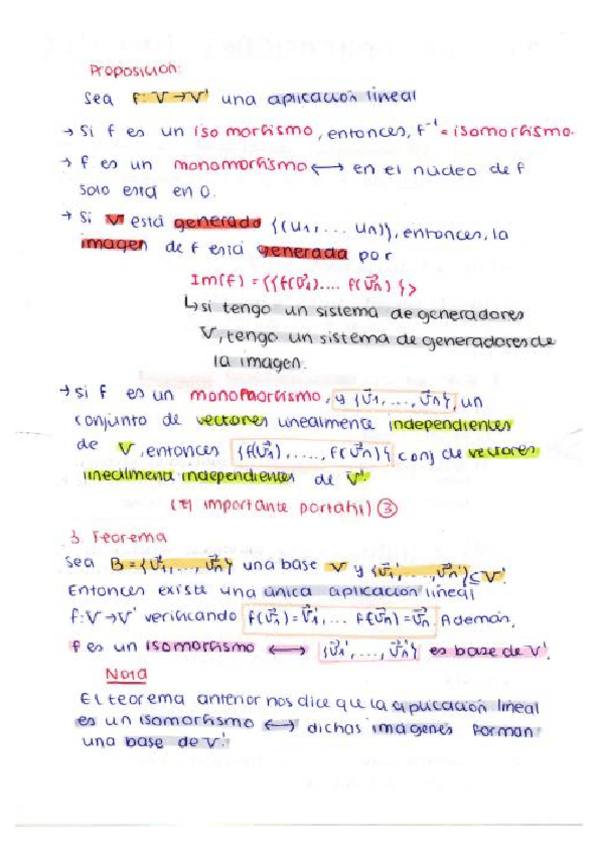 Proposición:
Sea f: V → V' una aplicación lineal
→ Si f es un isomorfismo, entonces, f⁻¹ = isomorfismo.
→ f es un monomorfismo ↔ en el núcleo de f
solo está en 0.
→ Si V está generado {(u₁, ... un)}, entonces, la
imagen de f está generada por
Im(f) = <{f(v⃗₁).... f(v⃗n)}>
↳ si tengo un sistema de generadores
V, tengo un sistema de generadores de
la imagen.
→ si f es un monomorfismo, y {v⃗₁, ..., v⃗n}, un
conjunto de vectores linealmente independientes
de V, entonces {f(v⃗₁), ...., f(v⃗n)} conj de vectores
linealmente independientes de V'.
importante ③
3. Teorema
Sea B = {v⃗₁, ..., v⃗n} una base V y {v⃗₁', ..., v⃗n'} ⊆ V'.
Entonces existe una única aplicación lineal
f: V → V' verificando f(v⃗₁) = v⃗₁', ... f(v⃗n) = v⃗n'. Además,
f es un isomorfismo ↔ {v⃗₁', ..., v⃗n'} es base de V'.
Nota
El teorema anterior nos dice que la aplicación lineal
es un isomorfismo ↔ dichas imagenes forman
una base de V'.